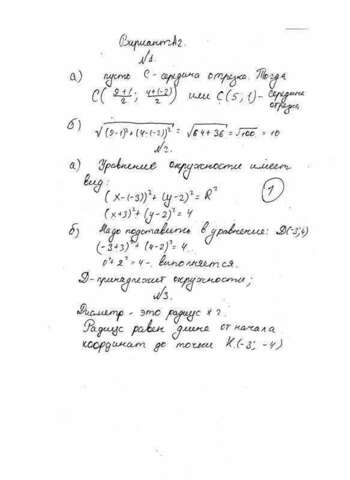 Вариант А2.
№1.
а) пусть С - середина отрезка. Тогда
С(9+1/2; 4+(-2)/2) или С(5; 1) - середина
отрезка
б) √(9-1)²+(4-(-2))² = √64+36 = √100 = 10
№2.
а) Уравнение окружности имеет
вид:
(x-(-3))²+(y-2)² = R²
(x+3)²+(y-2)² = 4
1
б) Надо подставить в уравнение: D(-3;4)
(-3+3)²+(4-2)² = 4
0²+2² = 4 - выполняется.
D - принадлежит окружности;
№3.
Диаметр - это радиус × 2.
Радиус равен длине от начала
координат до точки К(-3; -4)